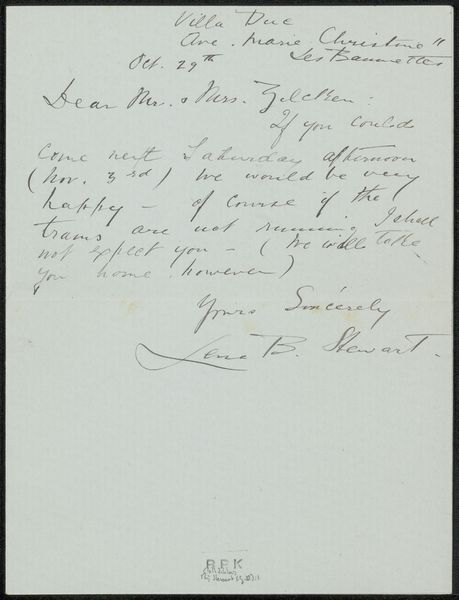 Villa Duc
Ave. Marie Christine"
Les Baumettes
Oct. 29th
Dear Mr. & Mrs. Zilcken:
If you could
come next Saturday afternoon
(Nov. 3rd) we would be very
happy - of course if the
trams are not running I shall
not expect you - (We will take
you home however)
Yours Sincerely
Lena B. Stewart.
R.P.K